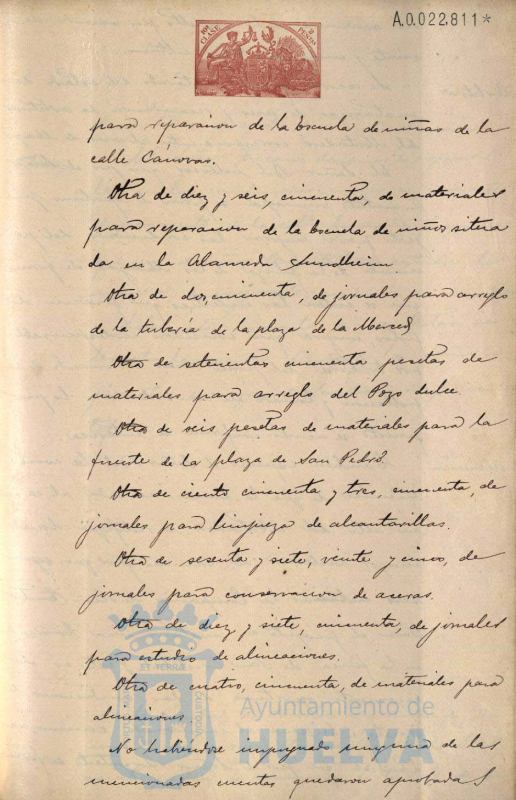 10ª CLASE
2 PESETAS
A.0.022,811*
para reparacion de la Escuela de niñas de la
calle Cánovas.
Otra de diez y seis, cincuenta, de materiales
para reparacion de la Escuela de niños situa
da en la Alameda Sundheim.
Otra de dos, cincuenta, de jornales para arreglo
de la tuberia de la plaza de la Merced
Otra de setecientas cincuenta pesetas de
materiales para arreglo del Pozo dulce.
Otra de seis pesetas de materiales para la
fuente de la plaza de San Pedro.
Otra de ciento cincuenta y tres, cincuenta, de
jornales para limpieza de alcantarillas.
Otra de sesenta y siete, veinte y cinco, de
jornales para conservacion de aceras.
Otra de diez y siete, cincuenta, de jornales
para estudio de alineaciones.
Otra de cuatro, cincuenta, de materiales para
alineaciones.
No habiendose impugnado ninguna de las
mencionadas cuentas quedaron aprobadas
Ayuntamiento de
HUELVA